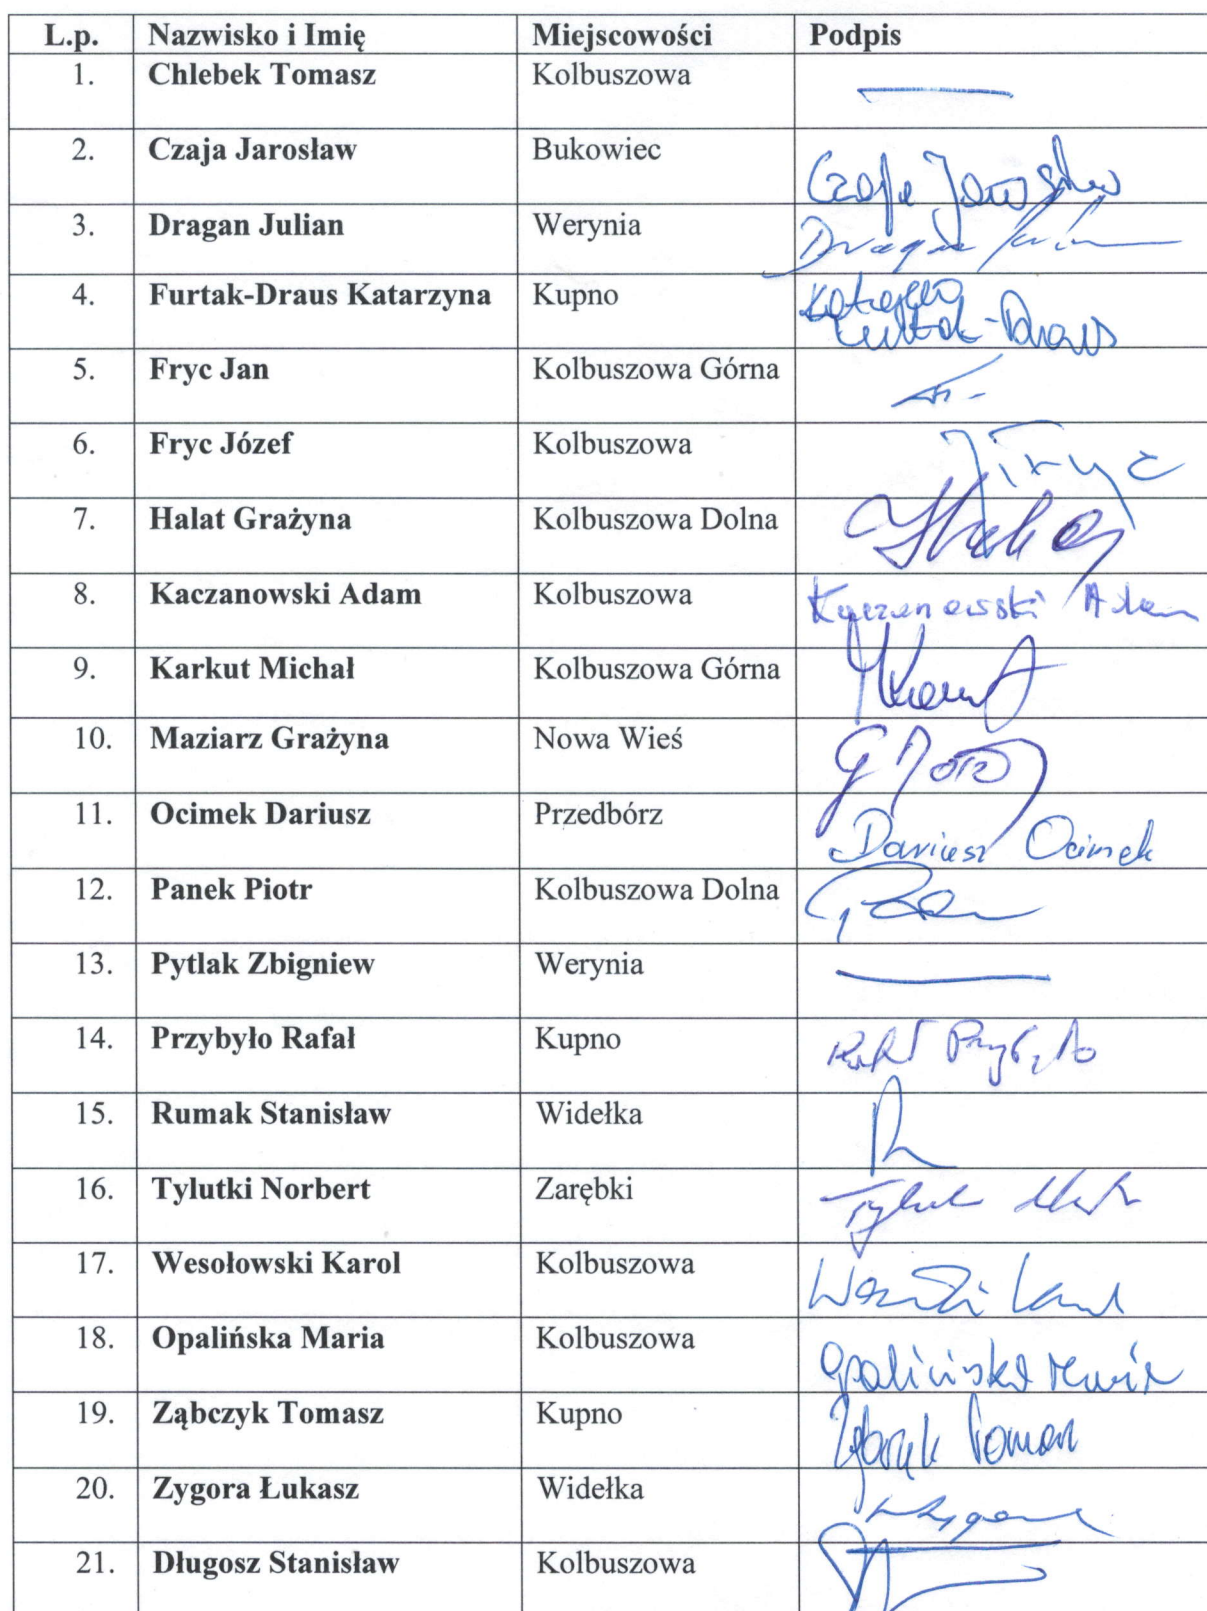 L.p. Nazwisko i Imię Miejscowości Podpis
1. Chlebek Tomasz Kolbuszowa
2. Czaja Jarosław Bukowiec Czaja Jarosław
3. Dragan Julian Werynia Dragan Julian
4. Furtak-Draus Katarzyna Kupno Katarzyna Furtak-Draus
5. Fryc Jan Kolbuszowa Górna
6. Fryc Józef Kolbuszowa J Fryc
7. Halat Grażyna Kolbuszowa Dolna
8. Kaczanowski Adam Kolbuszowa Kaczanowski Adam
9. Karkut Michał Kolbuszowa Górna
10. Maziarz Grażyna Nowa Wieś
11. Ocimek Dariusz Przedbórz Dariusz Ocimek
12. Panek Piotr Kolbuszowa Dolna
13. Pytlak Zbigniew Werynia
14. Przybyło Rafał Kupno Rafał Przybyło
15. Rumak Stanisław Widełka
16. Tylutki Norbert Zarębki
17. Wesołowski Karol Kolbuszowa
18. Opalińska Maria Kolbuszowa Opalińska Maria
19. Ząbczyk Tomasz Kupno Ząbczyk Tomasz
20. Zygora Łukasz Widełka
21. Długosz Stanisław Kolbuszowa